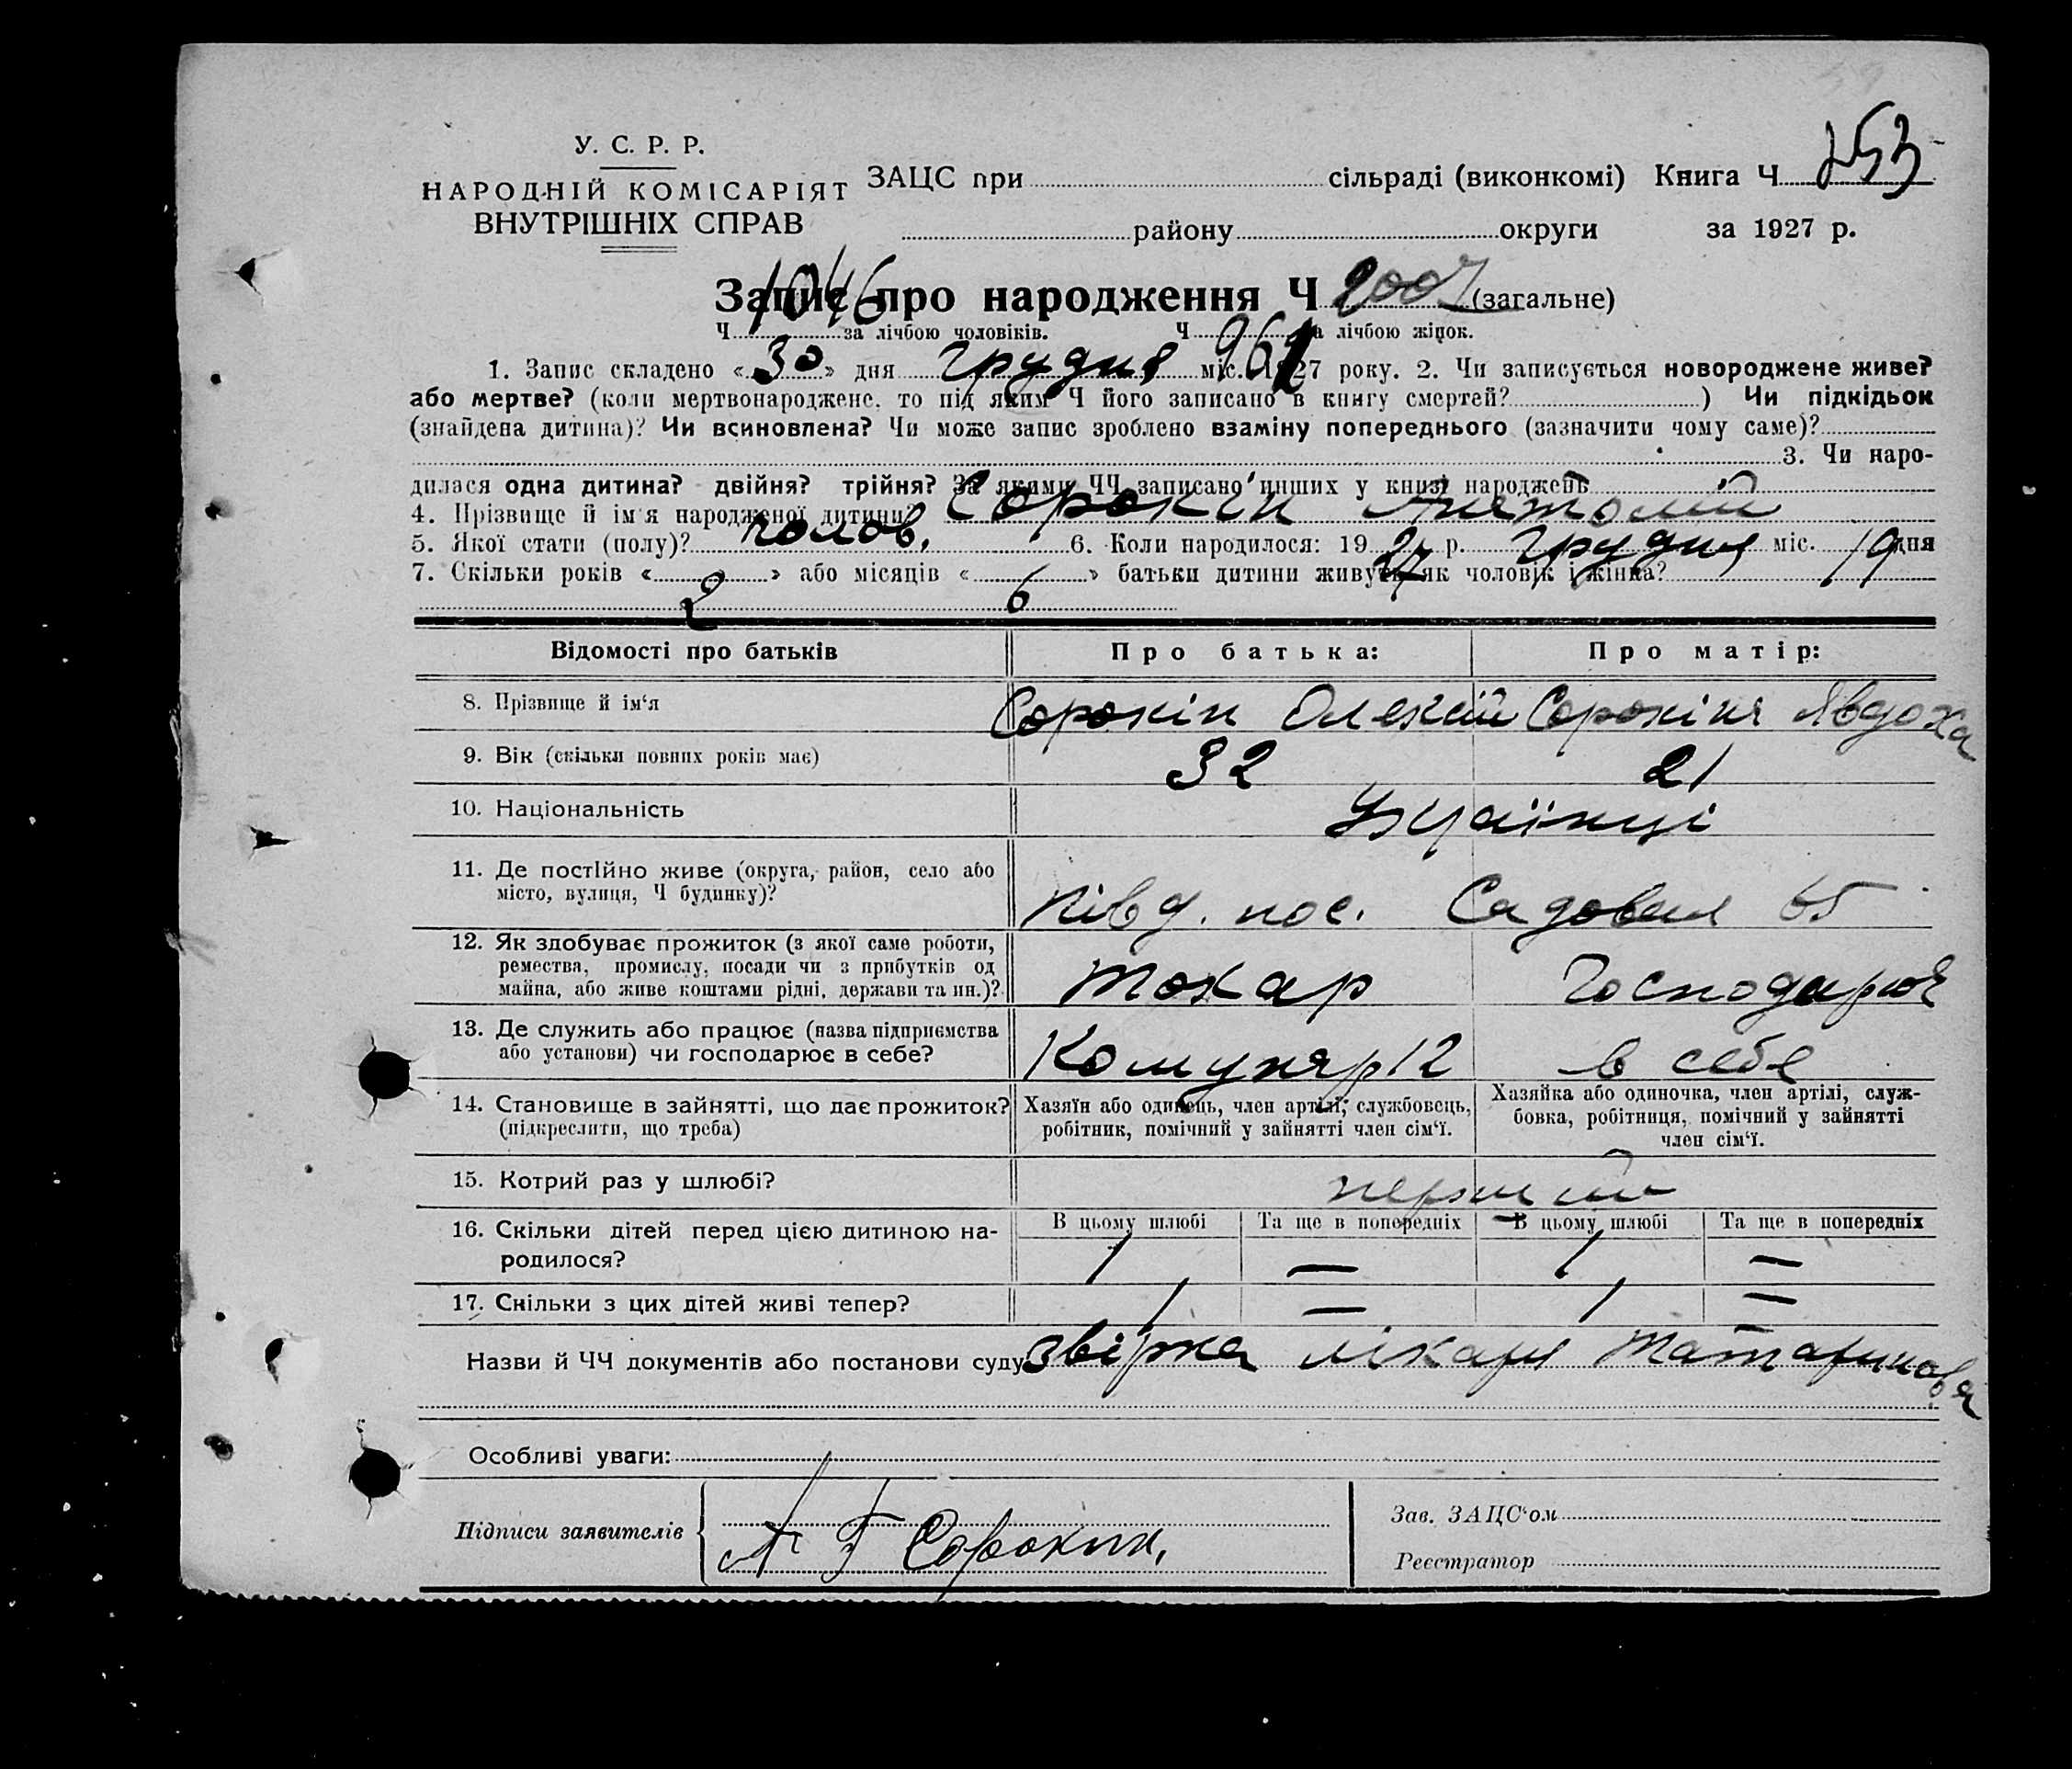 У. С. Р. Р.
НАРОДНІЙ КОМІСАРІЯТ
ВНУТРІШНІХ СПРАВ
ЗАЦС при сільраді (виконкомі) Книга Ч 253
району округи за 1927 р.
Запис про народження Ч 2007 (загальне)
Ч 1046 за лічбою чоловіків. Ч 961 за лічбою жінок.
1. Запис складено «30» дня грудня міс. 1927 року. 2. Чи записується новороджене живе?
або мертве? (коли мертвонароджене, то під яким Ч його записано в книгу смертей? ) Чи підкідьок
(знайдена дитина)? Чи всиновлена? Чи може запис зроблено взаміну попереднього (зазначити чому саме)?
3. Чи наро-
дилася одна дитина? двійня? трійня? За якими ЧЧ записано инших у книзі народжень
4. Прізвище й ім'я народженої дитини? Сорокін Анатолій
5. Якої стати (полу)? чолов. 6. Коли народилося: 1927 р. грудня міс. 19 дня
7. Скільки років «2» або місяців «6» батьки дитини живуть як чоловік і жінка?
Відомості про батьків Про батька: Про матір:
8. Прізвище й ім'я Сорокін Олексій Сорокіна Явдоха
9. Вік (скільки повних років має) 32 21
10. Національність Українці
11. Де постійно живе (округа, район, село або
місто, вулиця, Ч будинку)? Півд. пос. Садовая 65
12. Як здобуває прожиток (з якої саме роботи,
ремества, промислу, посади чи з прибутків од
майна, або живе коштами рідні, держави та ин.)? Токар Господарює
13. Де служить або працює (назва підприємства
або установи) чи господарює в себе? Комунар 12 в себе
14. Становище в зайнятті, що дає прожиток?
(підкреслити, що треба)
Хазяїн або одинець, член артілі, службовець,
робітник, помічний у зайнятті член сім'ї.
Хазяйка або одиночка, член артілі, служ-
бовка, робітниця, помічний у зайнятті
член сім'ї.
15. Котрий раз у шлюбі? перший
В цьому шлюбі Та ще в попередніх В цьому шлюбі Та ще в попередніх
16. Скільки дітей перед цією дитиною на-
родилося? 1 — 1 —
17. Скільки з цих дітей живі тепер? 1 — 1 —
Назви й ЧЧ документів або постанови суду звірка лікаря Татаринова
Особливі уваги:
Підписи заявителів А Г Сорокин,
Зав. ЗАЦС'ом
Реєстратор